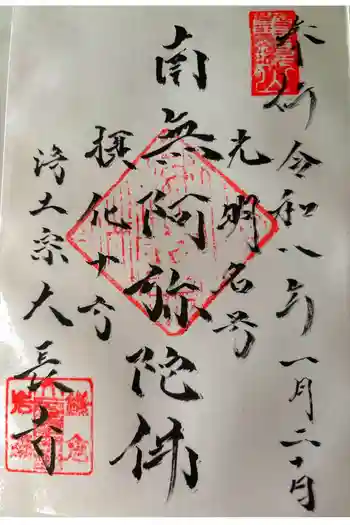 奉拝 令和八年一月二十日
光明名号
南無阿弥陀佛
摂化十方
浄土宗大長寺
鎌倉